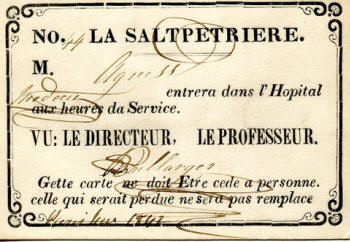 NO. 44 LA SALTPETRIERE.
M. Aguess
entrera dans l'Hopital
aux heures da Service.
VU: LE DIRECTEUR, LE PROFESSEUR.
Baillarger
Gette carte ne doit Etre cede a personne.
celle qui serait perdue ne sera pas remplace
1842